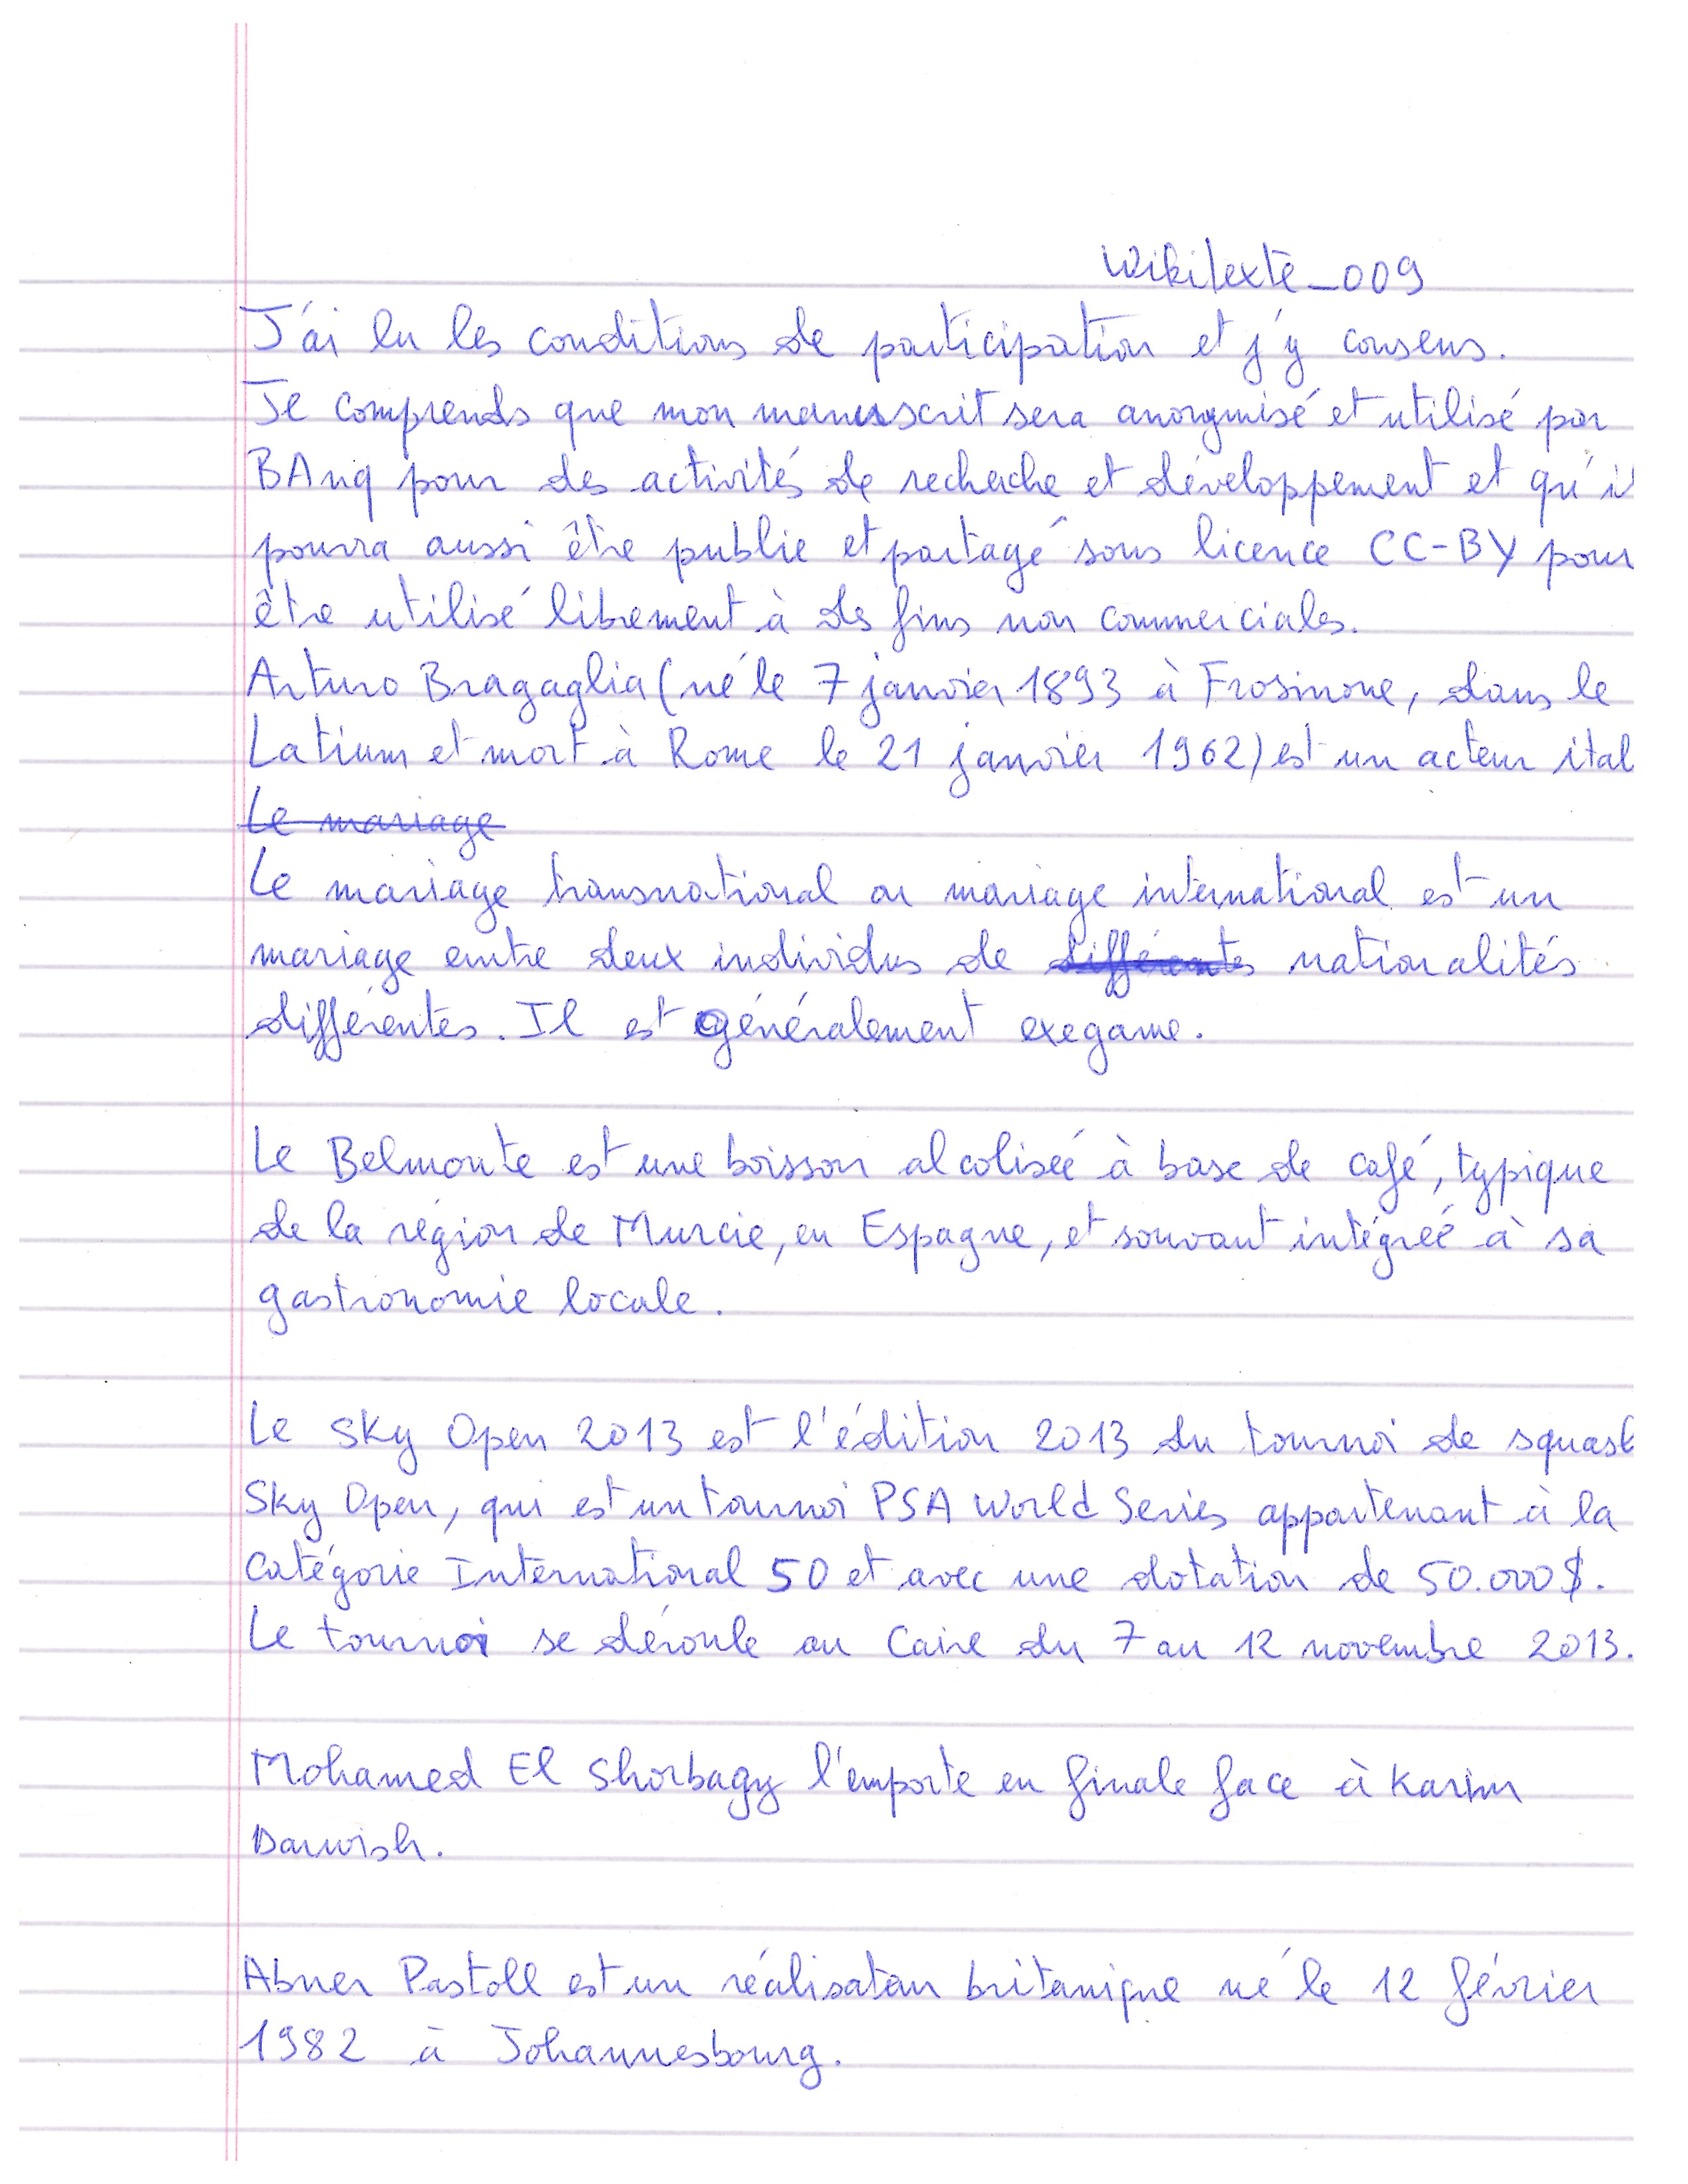 Wikitexte_009
J'ai lu les conditions de participation et j'y consens.
Je comprends que mon manuscrit sera anonymisé et utilisé par
BAnq pour des activités de recheche et développement et qu'il
pourra aussi être publié et partagé sous licence CC-BY pour
être utilisé librement à des fins non commerciales.
Arturo Bragaglia (né le 7 janvier 1893 à Frosinone, dans le
Latium et mort à Rome le 21 janvier 1962) est un acteur ital
Le mariage
Le mariage transnational ou mariage international est un
mariage entre deux individus de différentes nationalités
différentes. Il est généralement exegame.
Le Belmonte est une boisson alcolisée à base de café, typique
de la région de Murcie, en Espagne, et souvant intégreé à sa
gastronomie locale.
Le Sky Open 2013 est l'édition 2013 du tournoi de squash
Sky Open, qui est un tournoi PSA World Series appartenant à la
catégorie International 50 et avec une dotation de 50.000$.
Le tournoi se déroule au Caire du 7 au 12 novembre 2013.
Mohamed El Shorbagy l'emporte en finale face à Karim
Darwish.
Abner Pastoll est un réalisateur britanique né le 12 février
1982 à Johannesbourg.